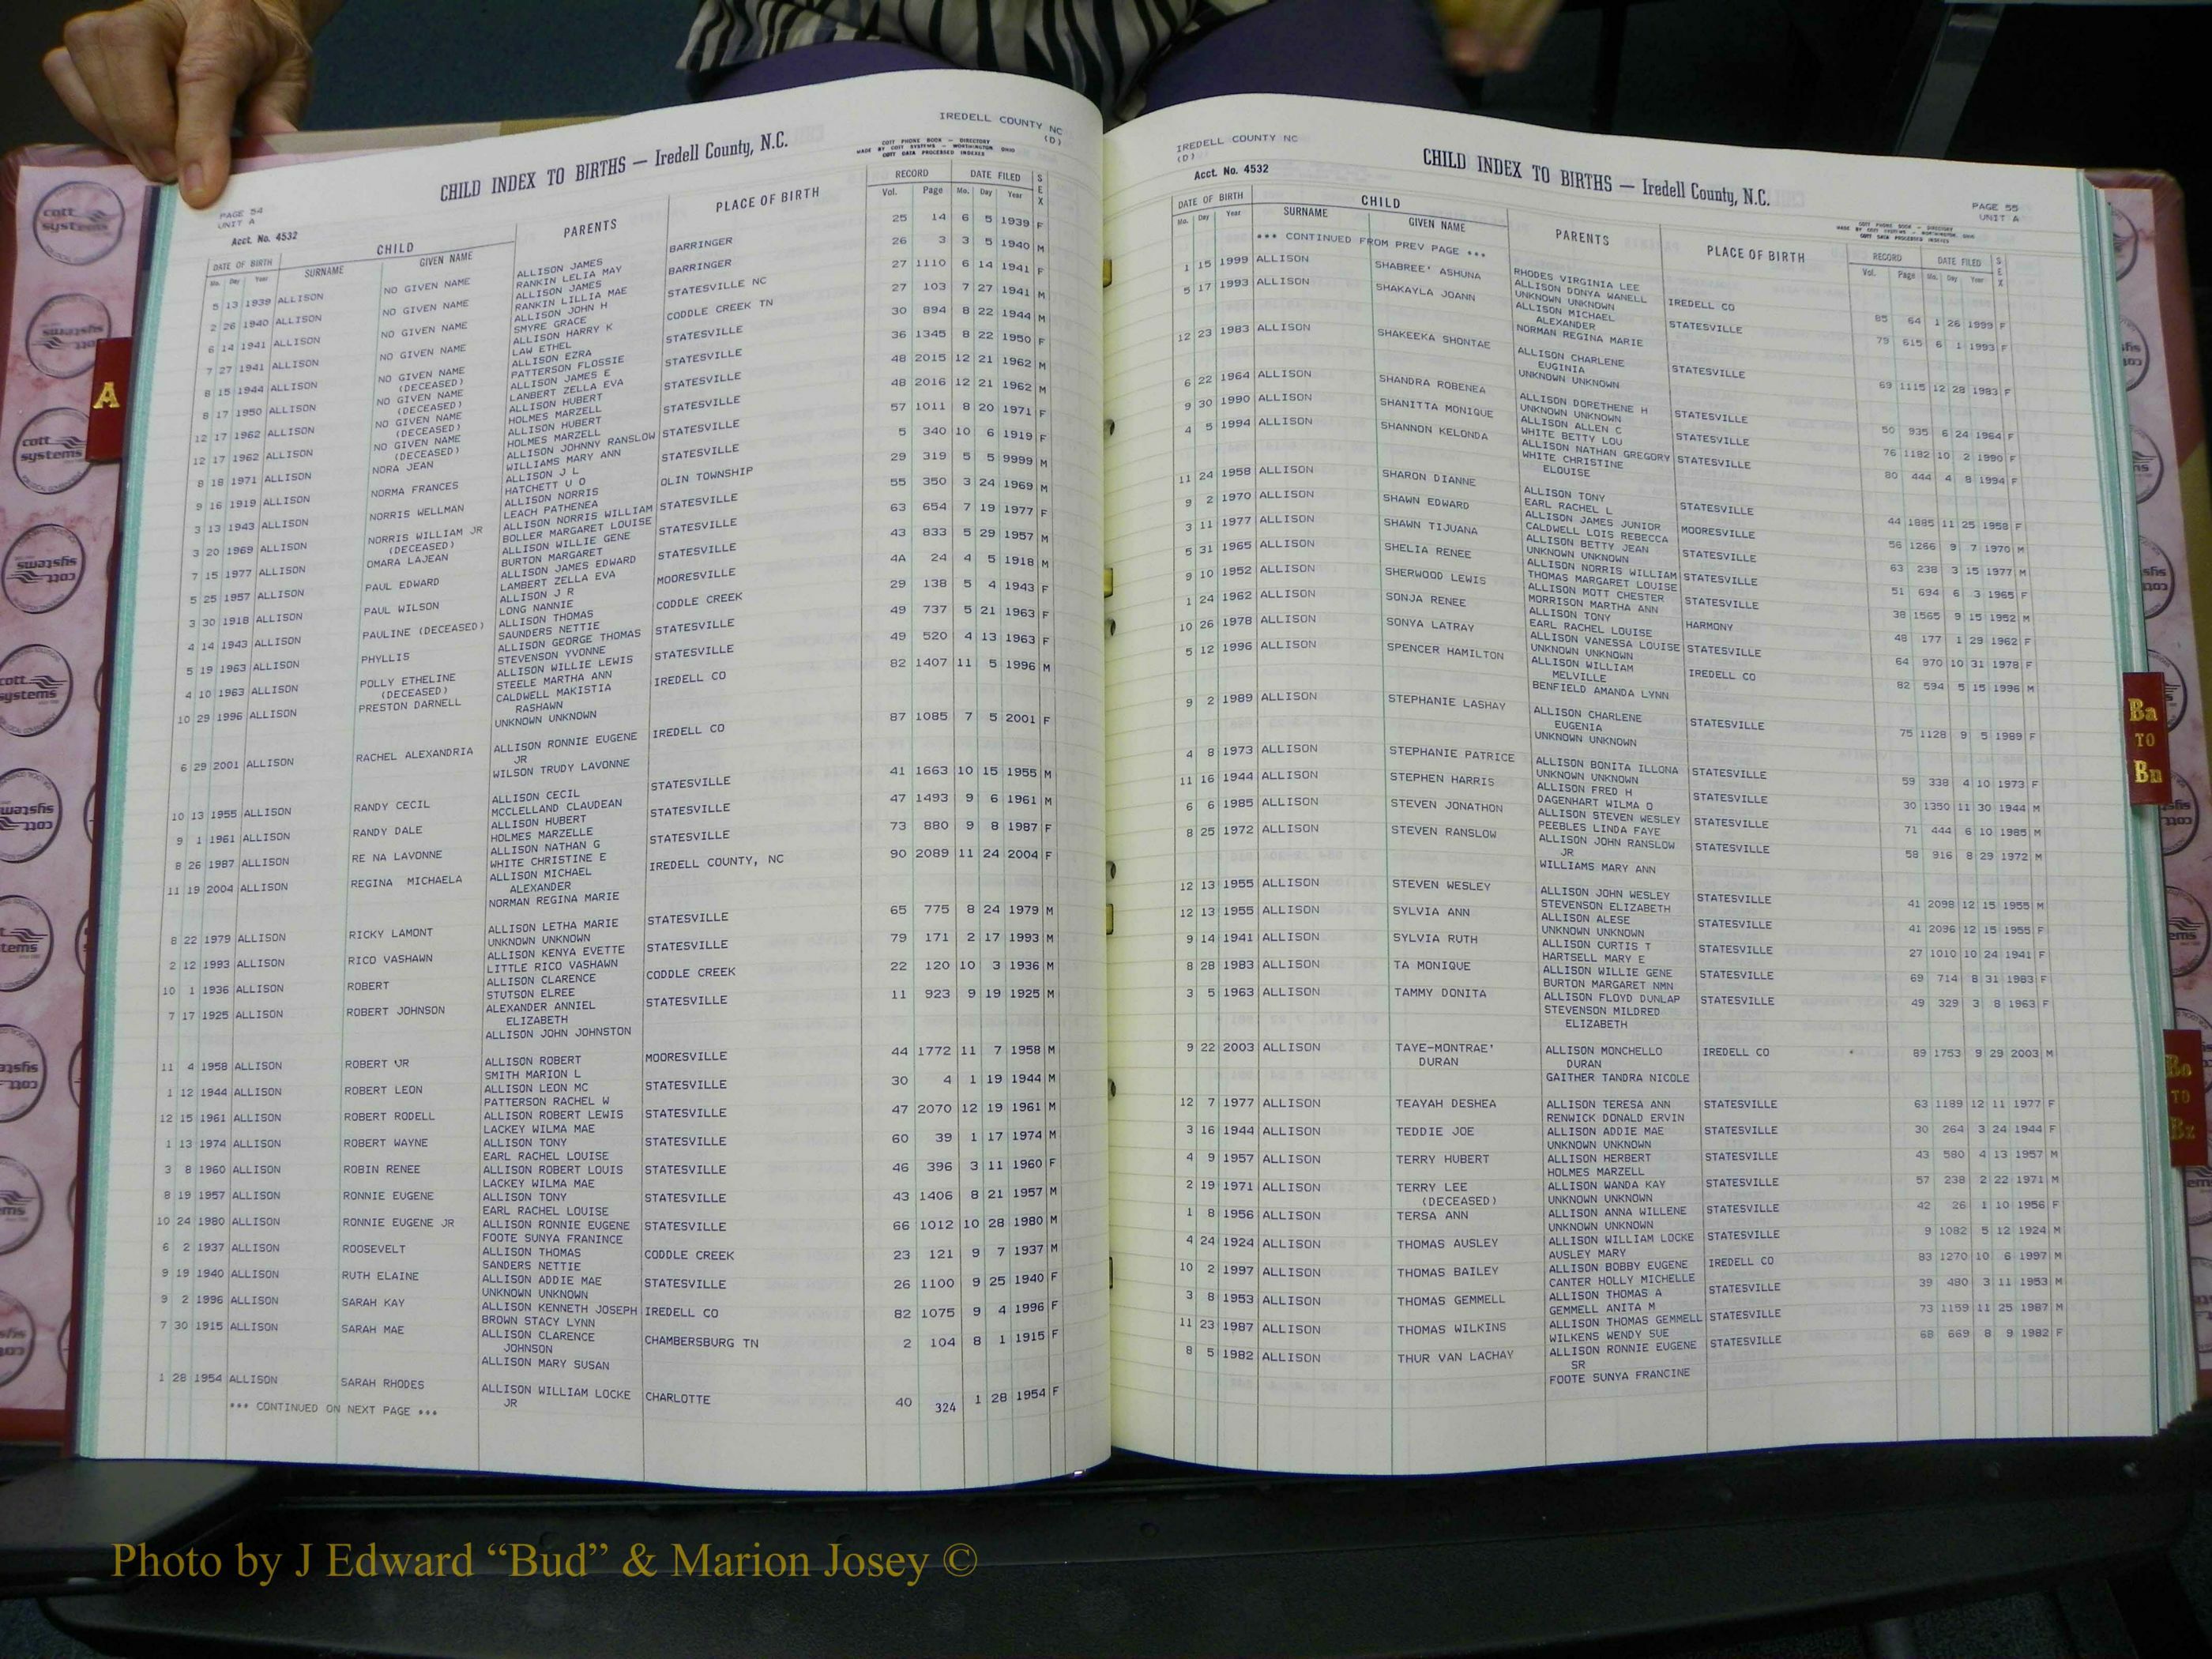 IREDELL COUNTY NC
(D)
CHILD INDEX TO BIRTHS — Iredell County, N.C.
COTT PHONE BOOK — DIRECTORY
MADE BY COTT SYSTEMS — WORTHINGTON, OHIO
COTT DATA PROCESSED INDEXES
PAGE 54
UNIT A
Acct. No. 4532
DATE OF BIRTH CHILD PARENTS PLACE OF BIRTH RECORD DATE FILED SEX
Mo. Day Year SURNAME GIVEN NAME Vol. Page Mo. Day Year
5 13 1939 ALLISON NO GIVEN NAME ALLISON JAMES BARRINGER 25 14 6 5 1939 F
RANKIN LELIA MAY
2 26 1940 ALLISON NO GIVEN NAME ALLISON JAMES BARRINGER 26 3 3 5 1940 M
RANKIN LILLIA MAE
6 14 1941 ALLISON NO GIVEN NAME ALLISON JOHN H STATESVILLE NC 27 1110 6 14 1941 F
SMYRE GRACE
7 27 1941 ALLISON NO GIVEN NAME ALLISON HARRY K CODDLE CREEK TN 27 103 7 27 1941 M
LAW ETHEL
8 15 1944 ALLISON NO GIVEN NAME ALLISON EZRA STATESVILLE 30 894 8 22 1944 M
(DECEASED) PATTERSON FLOSSIE
8 17 1950 ALLISON NO GIVEN NAME ALLISON JAMES E STATESVILLE 36 1345 8 22 1950 F
(DECEASED) LANBERT ZELLA EVA
12 17 1962 ALLISON NO GIVEN NAME ALLISON HUBERT STATESVILLE 48 2015 12 21 1962 M
(DECEASED) HOLMES MARZELL
12 17 1962 ALLISON NO GIVEN NAME ALLISON HUBERT STATESVILLE 48 2016 12 21 1962 M
(DECEASED) HOLMES MARZELL
8 18 1971 ALLISON NORA JEAN ALLISON JOHNNY RANSLOW STATESVILLE 57 1011 8 20 1971 F
WILLIAMS MARY ANN
9 16 1919 ALLISON NORMA FRANCES ALLISON J L STATESVILLE 5 340 10 6 1919 F
HATCHETT U O
3 13 1943 ALLISON NORRIS WELLMAN ALLISON NORRIS OLIN TOWNSHIP 29 319 5 5 9999 M
LEACH PATHENEA
3 20 1969 ALLISON NORRIS WILLIAM JR ALLISON NORRIS WILLIAM STATESVILLE 55 350 3 24 1969 M
(DECEASED) BOLLER MARGARET LOUISE
7 15 1977 ALLISON OMARA LAJEAN ALLISON WILLIE GENE STATESVILLE 63 654 7 19 1977 F
BURTON MARGARET
5 25 1957 ALLISON PAUL EDWARD ALLISON JAMES EDWARD STATESVILLE 43 833 5 29 1957 M
LAMBERT ZELLA EVA
3 30 1918 ALLISON PAUL WILSON ALLISON J R MOORESVILLE 4A 24 4 5 1918 M
LONG NANNIE
4 14 1943 ALLISON PAULINE (DECEASED) ALLISON THOMAS CODDLE CREEK 29 138 5 4 1943 F
SAUNDERS NETTIE
5 19 1963 ALLISON PHYLLIS ALLISON GEORGE THOMAS STATESVILLE 49 737 5 21 1963 F
STEVENSON YVONNE
4 10 1963 ALLISON POLLY ETHELINE ALLISON WILLIE LEWIS STATESVILLE 49 520 4 13 1963 F
(DECEASED) STEELE MARTHA ANN
10 29 1996 ALLISON PRESTON DARNELL CALDWELL MAKISTIA IREDELL CO 82 1407 11 5 1996 M
RASHAWN
UNKNOWN UNKNOWN
6 29 2001 ALLISON RACHEL ALEXANDRIA ALLISON RONNIE EUGENE IREDELL CO 87 1085 7 5 2001 F
JR
WILSON TRUDY LAVONNE
10 13 1955 ALLISON RANDY CECIL ALLISON CECIL STATESVILLE 41 1663 10 15 1955 M
MCCLELLAND CLAUDEAN
9 1 1961 ALLISON RANDY DALE ALLISON HUBERT STATESVILLE 47 1493 9 6 1961 M
HOLMES MARZELLE
8 26 1987 ALLISON RE NA LAVONNE ALLISON NATHAN G STATESVILLE 73 880 9 8 1987 F
WHITE CHRISTINE E
11 19 2004 ALLISON REGINA MICHAELA ALLISON MICHAEL IREDELL COUNTY, NC 90 2089 11 24 2004 F
ALEXANDER
NORMAN REGINA MARIE
8 22 1979 ALLISON RICKY LAMONT ALLISON LETHA MARIE STATESVILLE 65 775 8 24 1979 M
UNKNOWN UNKNOWN
2 12 1993 ALLISON RICO VASHAWN ALLISON KENYA EVETTE STATESVILLE 79 171 2 17 1993 M
LITTLE RICO VASHAWN
10 1 1936 ALLISON ROBERT ALLISON CLARENCE CODDLE CREEK 22 120 10 3 1936 M
STUTSON ELREE
7 17 1925 ALLISON ROBERT JOHNSON ALEXANDER ANNIEL STATESVILLE 11 923 9 19 1925 M
ELIZABETH
ALLISON JOHN JOHNSTON
11 4 1958 ALLISON ROBERT JR ALLISON ROBERT MOORESVILLE 44 1772 11 7 1958 M
SMITH MARION L
1 12 1944 ALLISON ROBERT LEON ALLISON LEON MC STATESVILLE 30 4 1 19 1944 M
PATTERSON RACHEL W
12 15 1961 ALLISON ROBERT RODELL ALLISON ROBERT LEWIS STATESVILLE 47 2070 12 19 1961 M
LACKEY WILMA MAE
1 13 1974 ALLISON ROBERT WAYNE ALLISON TONY STATESVILLE 60 39 1 17 1974 M
EARL RACHEL LOUISE
3 8 1960 ALLISON ROBIN RENEE ALLISON ROBERT LOUIS STATESVILLE 46 396 3 11 1960 F
LACKEY WILMA MAE
8 19 1957 ALLISON RONNIE EUGENE ALLISON TONY STATESVILLE 43 1406 8 21 1957 M
EARL RACHEL LOUISE
10 24 1980 ALLISON RONNIE EUGENE JR ALLISON RONNIE EUGENE STATESVILLE 66 1012 10 28 1980 M
FOOTE SUNYA FRANINCE
6 2 1937 ALLISON ROOSEVELT ALLISON THOMAS CODDLE CREEK 23 121 9 7 1937 M
SANDERS NETTIE
9 19 1940 ALLISON RUTH ELAINE ALLISON ADDIE MAE STATESVILLE 26 1100 9 25 1940 F
UNKNOWN UNKNOWN
9 2 1996 ALLISON SARAH KAY ALLISON KENNETH JOSEPH IREDELL CO 82 1075 9 4 1996 F
BROWN STACY LYNN
7 30 1915 ALLISON SARAH MAE ALLISON CLARENCE CHAMBERSBURG TN 2 104 8 1 1915 F
JOHNSON
ALLISON MARY SUSAN
1 28 1954 ALLISON SARAH RHODES ALLISON WILLIAM LOCKE CHARLOTTE 40 324 1 28 1954 F
JR
*** CONTINUED ON NEXT PAGE ***
IREDELL COUNTY NC
(D)
Acct. No. 4532
CHILD INDEX TO BIRTHS — Iredell County, N.C.
PAGE 55
UNIT A
MADE BY COTT SYSTEMS — WORTHINGTON, OHIO
COTT DATA PROCESSED INDEXES
DATE OF BIRTH CHILD PARENTS PLACE OF BIRTH RECORD DATE FILED SEX
Mo. Day Year SURNAME GIVEN NAME Vol. Page Mo. Day Year
*** CONTINUED FROM PREV PAGE ***
RHODES VIRGINIA LEE
1 15 1999 ALLISON SHABREE' ASHUNA ALLISON DONYA WANELL IREDELL CO 85 64 1 26 1999 F
UNKNOWN UNKNOWN
5 17 1993 ALLISON SHAKAYLA JOANN ALLISON MICHAEL STATESVILLE 79 615 6 1 1993 F
ALEXANDER
NORMAN REGINA MARIE
12 23 1983 ALLISON SHAKEEKA SHONTAE ALLISON CHARLENE STATESVILLE 69 1115 12 28 1983 F
EUGINIA
UNKNOWN UNKNOWN
6 22 1964 ALLISON SHANDRA ROBENEA ALLISON DORETHENE H STATESVILLE 50 935 6 24 1964 F
UNKNOWN UNKNOWN
9 30 1990 ALLISON SHANITTA MONIQUE ALLISON ALLEN C STATESVILLE 76 1182 10 2 1990 F
WHITE BETTY LOU
4 5 1994 ALLISON SHANNON KELONDA ALLISON NATHAN GREGORY STATESVILLE 80 444 4 8 1994 F
WHITE CHRISTINE
ELOUISE
11 24 1958 ALLISON SHARON DIANNE ALLISON TONY STATESVILLE 44 1885 11 25 1958 F
EARL RACHEL L
9 2 1970 ALLISON SHAWN EDWARD ALLISON JAMES JUNIOR MOORESVILLE 56 1266 9 7 1970 M
CALDWELL LOIS REBECCA
3 11 1977 ALLISON SHAWN TIJUANA ALLISON BETTY JEAN STATESVILLE 63 238 3 15 1977 M
UNKNOWN UNKNOWN
5 31 1965 ALLISON SHELIA RENEE ALLISON NORRIS WILLIAM STATESVILLE 51 694 6 3 1965 F
THOMAS MARGARET LOUISE
9 10 1952 ALLISON SHERWOOD LEWIS ALLISON MOTT CHESTER STATESVILLE 38 1565 9 15 1952 M
MORRISON MARTHA ANN
1 24 1962 ALLISON SONJA RENEE ALLISON TONY HARMONY 48 177 1 29 1962 F
EARL RACHEL LOUISE
10 26 1978 ALLISON SONYA LATRAY ALLISON VANESSA LOUISE STATESVILLE 64 970 10 31 1978 F
UNKNOWN UNKNOWN
5 12 1996 ALLISON SPENCER HAMILTON ALLISON WILLIAM IREDELL CO 82 594 5 15 1996 M
MELVILLE
BENFIELD AMANDA LYNN
9 2 1989 ALLISON STEPHANIE LASHAY ALLISON CHARLENE STATESVILLE 75 1128 9 5 1989 F
EUGENIA
UNKNOWN UNKNOWN
4 8 1973 ALLISON STEPHANIE PATRICE ALLISON BONITA ILLONA STATESVILLE 59 338 4 10 1973 F
UNKNOWN UNKNOWN
11 16 1944 ALLISON STEPHEN HARRIS ALLISON FRED H STATESVILLE 30 1350 11 30 1944 M
DAGENHART WILMA O
6 6 1985 ALLISON STEVEN JONATHON ALLISON STEVEN WESLEY STATESVILLE 71 444 6 10 1985 M
PEEBLES LINDA FAYE
8 25 1972 ALLISON STEVEN RANSLOW ALLISON JOHN RANSLOW STATESVILLE 58 916 8 29 1972 M
JR
WILLIAMS MARY ANN
12 13 1955 ALLISON STEVEN WESLEY ALLISON JOHN WESLEY STATESVILLE 41 2098 12 15 1955 M
STEVENSON ELIZABETH
12 13 1955 ALLISON SYLVIA ANN ALLISON ALESE STATESVILLE 41 2096 12 15 1955 F
UNKNOWN UNKNOWN
9 14 1941 ALLISON SYLVIA RUTH ALLISON CURTIS T STATESVILLE 27 1010 10 24 1941 F
HARTSELL MARY E
8 28 1983 ALLISON TA MONIQUE ALLISON WILLIE GENE STATESVILLE 69 714 8 31 1983 F
BURTON MARGARET NMN
3 5 1963 ALLISON TAMMY DONITA ALLISON FLOYD DUNLAP STATESVILLE 49 329 3 8 1963 F
STEVENSON MILDRED
ELIZABETH
9 22 2003 ALLISON TAYE-MONTRAE' ALLISON MONCHELLO IREDELL CO 89 1753 9 29 2003 M
DURAN DURAN
GAITHER TANDRA NICOLE
12 7 1977 ALLISON TEAYAH DESHEA ALLISON TERESA ANN STATESVILLE 63 1189 12 11 1977 F
RENWICK DONALD ERVIN
3 16 1944 ALLISON TEDDIE JOE ALLISON ADDIE MAE STATESVILLE 30 264 3 24 1944 F
UNKNOWN UNKNOWN
4 9 1957 ALLISON TERRY HUBERT ALLISON HERBERT STATESVILLE 43 580 4 13 1957 M
HOLMES MARZELL
2 19 1971 ALLISON TERRY LEE ALLISON WANDA KAY STATESVILLE 57 238 2 22 1971 M
(DECEASED) UNKNOWN UNKNOWN
1 8 1956 ALLISON TERSA ANN ALLISON ANNA WILLENE STATESVILLE 42 26 1 10 1956 F
UNKNOWN UNKNOWN
4 24 1924 ALLISON THOMAS AUSLEY ALLISON WILLIAM LOCKE STATESVILLE 9 1082 5 12 1924 M
AUSLEY MARY
10 2 1997 ALLISON THOMAS BAILEY ALLISON BOBBY EUGENE IREDELL CO 83 1270 10 6 1997 M
CANTER HOLLY MICHELLE
3 8 1953 ALLISON THOMAS GEMMELL ALLISON THOMAS A STATESVILLE 39 480 3 11 1953 M
GEMMELL ANITA M
11 23 1987 ALLISON THOMAS WILKINS ALLISON THOMAS GEMMELL STATESVILLE 73 1159 11 25 1987 M
WILKENS WENDY SUE
8 5 1982 ALLISON THUR VAN LACHAY ALLISON RONNIE EUGENE STATESVILLE 68 669 8 9 1982 F
SR
FOOTE SUNYA FRANCINE
A
Ba
TO
Bn
Bo
TO
Bz
cott
systems
Photo by J Edward “Bud” & Marion Josey ©